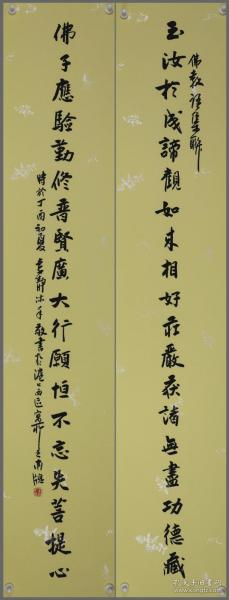 佛教經集聯
玉汝於成諦觀如來相好莊嚴获諸無盡功德藏
佛子應驗勤修普賢廣大行願恒不忘失菩提心
時於丁酉初夏